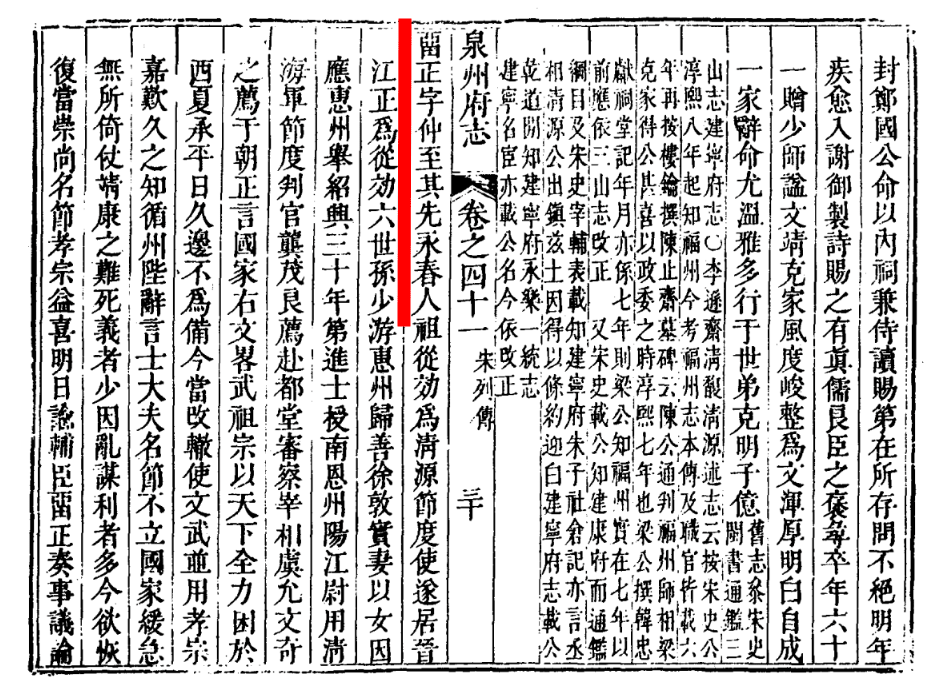 封鄭國公命以內祠兼侍讀賜第在所存問不絕明年
疾愈入謝御製詩賜之有真儒良臣之褒尋卒年六十
一贈少師諡文靖克家風度峻整爲文渾厚明白自成
一家辭命尤溫雅多行于世弟克明子億
舊志叅宋史
閩書通鑑三
山志建寧府志○李遜齋淸馥淸源述志云按宋史公
淳熙八年起知福州今考福州志本傳及職官皆載六
年再按樓鑰撰陳止齋墓碑云陳公通判福州師相梁
克家得公甚喜以政委之時淳熙七年也梁公撰韓忠
獻祠堂記年月亦係七年則梁公知福州實在七年以
前應依三山志改正　又宋史載公知建康府而通鑑
綱目及宋史宰輔表載知建寧府朱子社倉記亦言丞
相淸源公出鎮兹土因得以條約迎白建寧府志載公
乾道間知建寧府永樂一統志
建寧名宦亦載公名今依改正
泉州府志　卷之四十一　宋列傳　三十
畱正字仲至其先永春人祖從効爲淸源節度使遂居晉
江正爲從効六世孫少游惠州歸善徐敦實妻以女因
應惠州舉紹興三十年第進士授南恩州陽江尉用淸
海軍節度判官龔茂良薦赴都堂審察宰相虞允文奇
之薦于朝正言國家右文畧武祖宗以天下全力困於
西夏承平日久邊不爲備今當改轍使文武並用孝宗
嘉歎久之知循州陛辭言士大夫名節不立國家緩急
無所倚仗靖康之難死義者少因亂謀利者多今欲恢
復當崇尚名節孝宗益喜明日諭輔臣畱正奏事議論